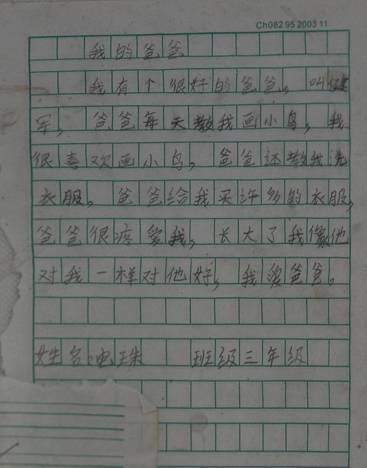 Ch082 95 2003 11
我的爸爸
我有个很好的爸爸，叫健
军，爸爸每天教我画小鸟，我
很喜欢画小鸟，爸爸还教我洗
衣服，爸爸给我买许多的衣服，
爸爸很疼爱我，长大了我像他
对我一样对他好，我爱爸爸。
姓名：珠 班级三年级